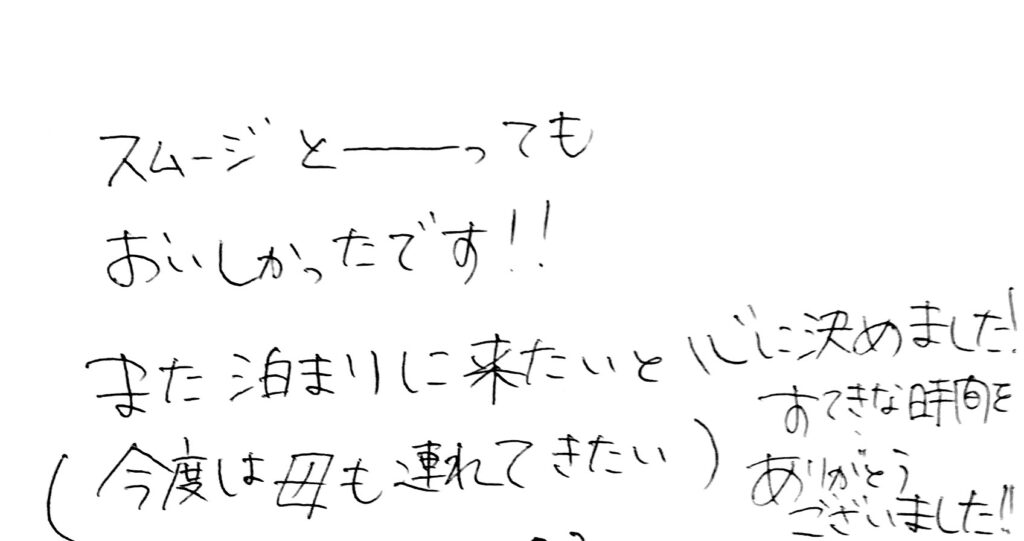 スムージとーーっても
おいしかったです!!
また泊まりに来たいと心に決めました!
(今度は母も連れてきたい)
すてきな時間を
ありがとう
ございました!!